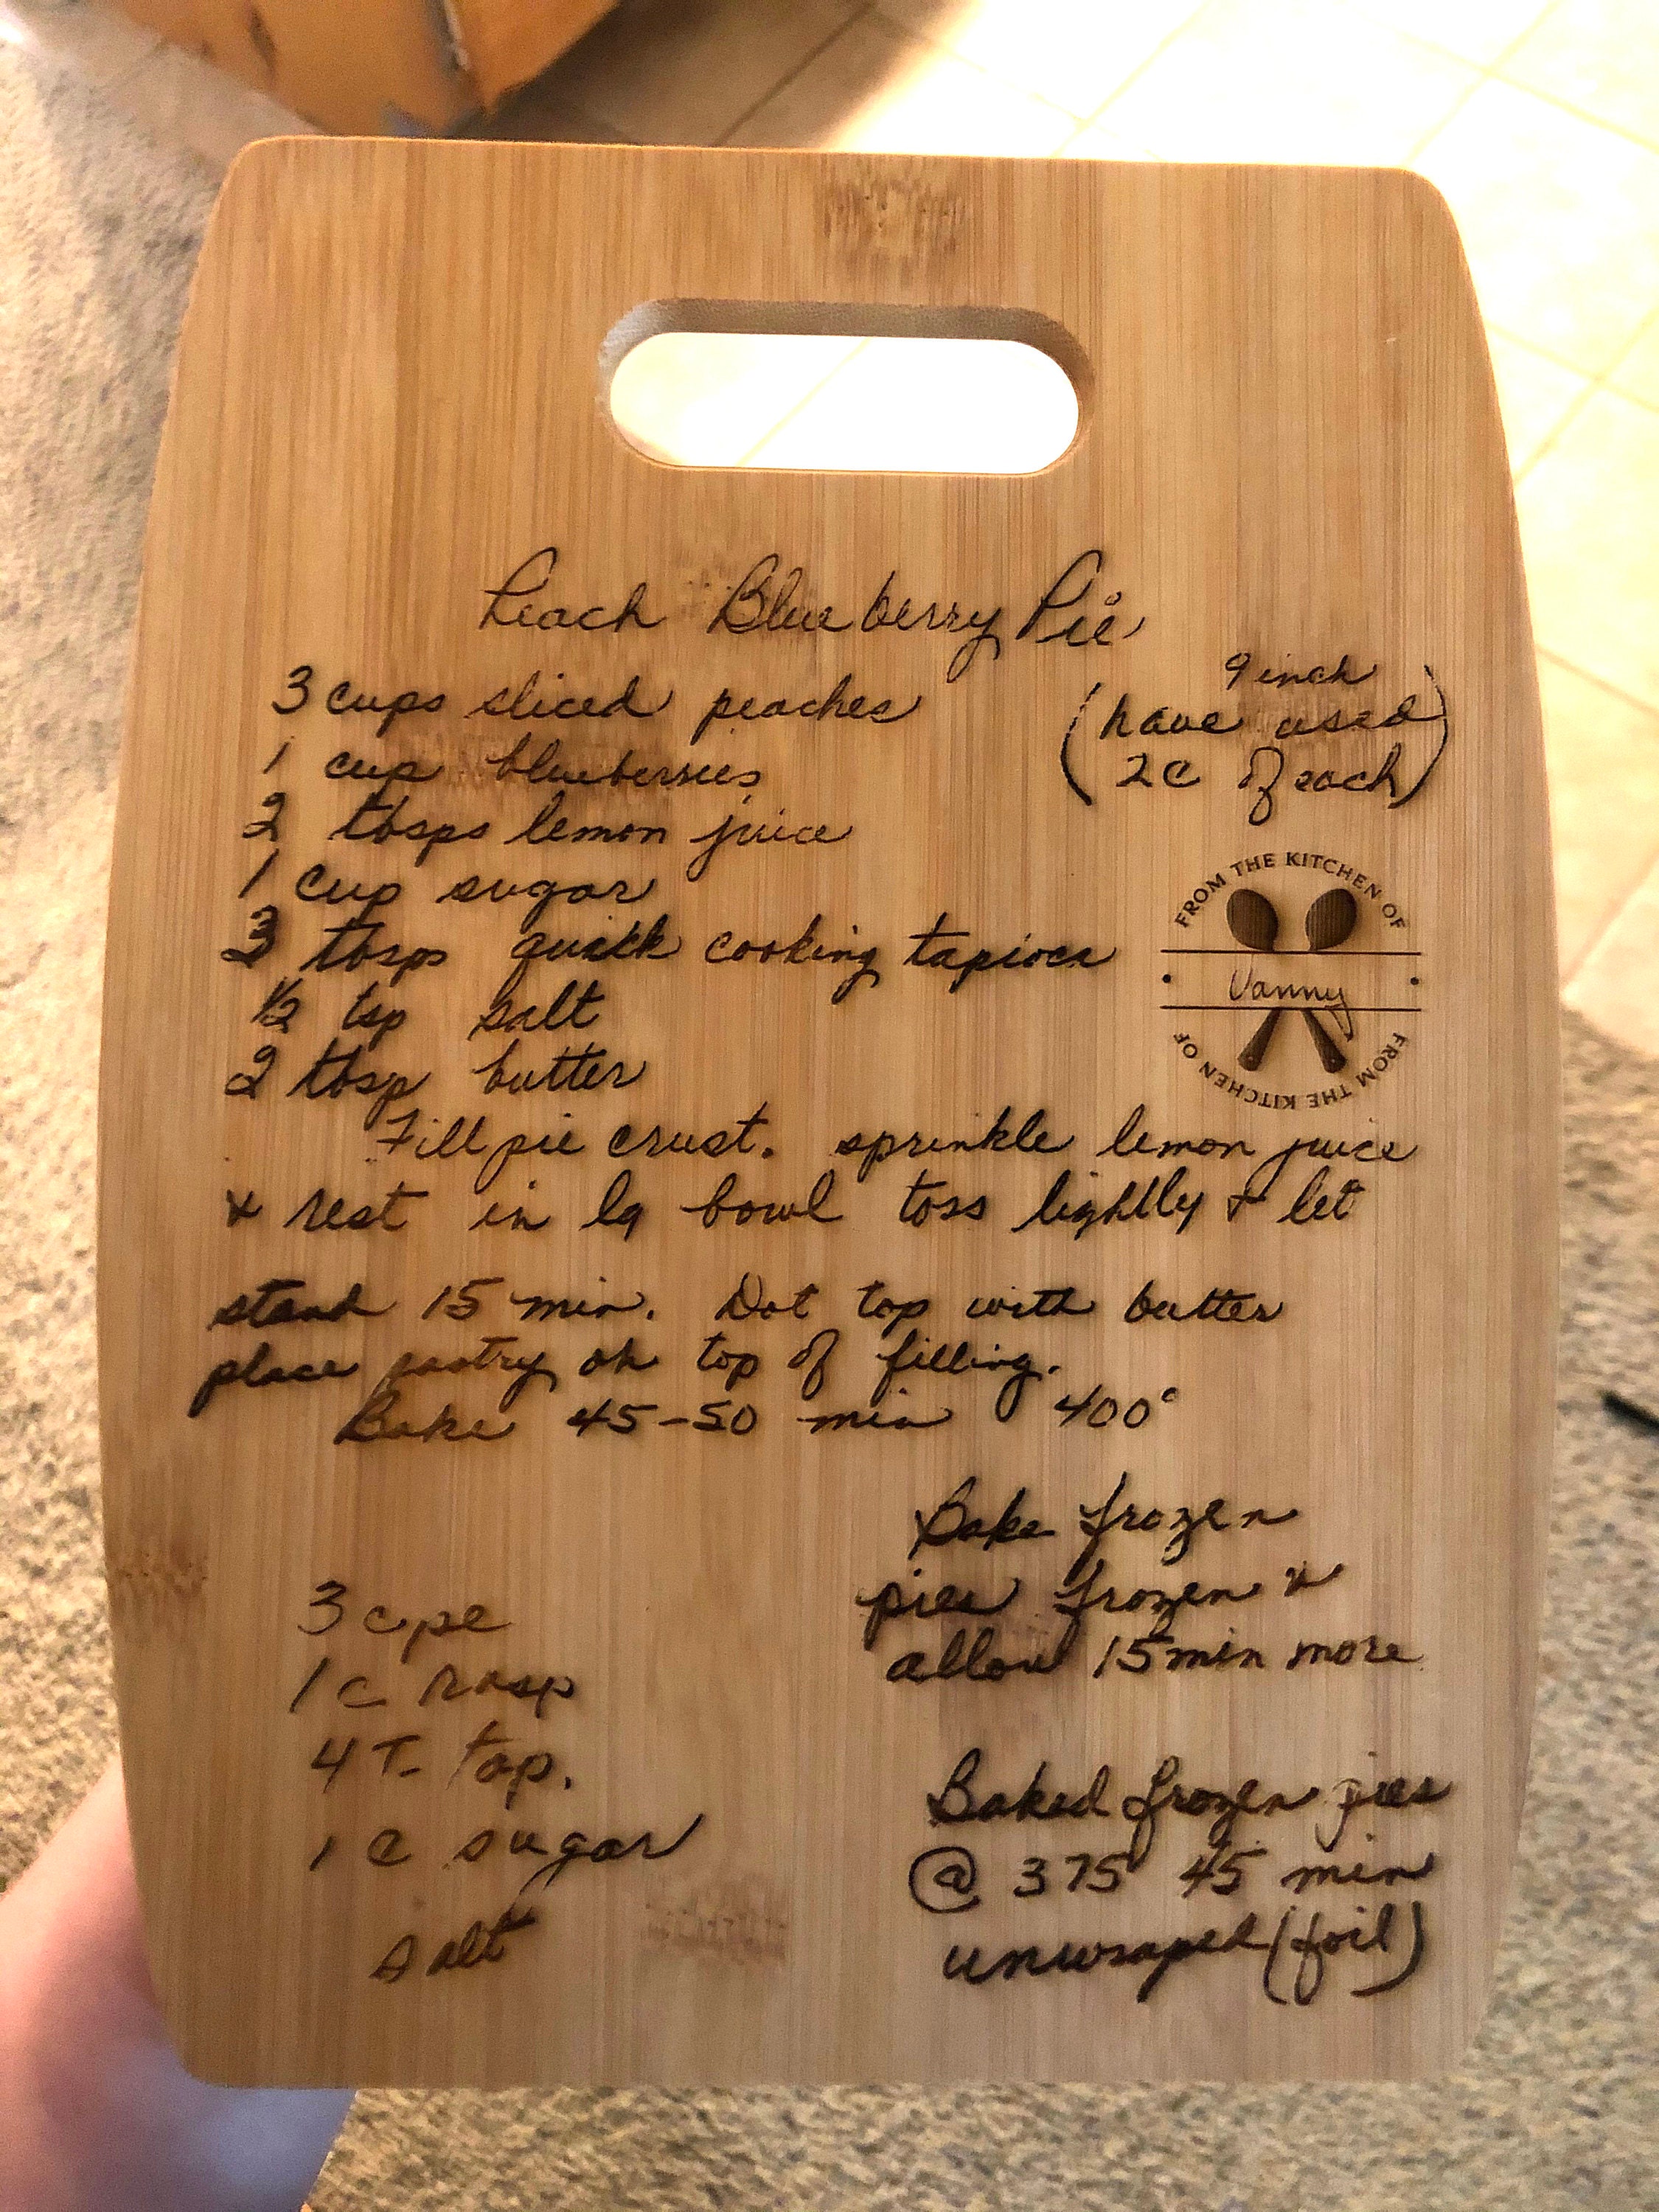 Peach Blueberry Pie
3 cups sliced peaches
1 cup blueberries
2 tbsps lemon juice
1 cup sugar
3 tbsps quick cooking tapioca
½ tsp salt
2 tbsp butter
9 inch
(have used
2c of each)
FROM THE KITCHEN OF
Vanny
FROM THE KITCHEN OF
Fill pie crust. sprinkle lemon juice
& rest in lg bowl toss lightly & let
stand 15 min. Dot top with butter
place pastry on top of filling.
Bake 45-50 min 400°
Bake frozen
pies frozen &
allow 15 min more
3 c pe
1 c rasp
4 T- tap.
1 c sugar
salt
Baked frozen pies
@ 375 45 min
unwraped (foil)